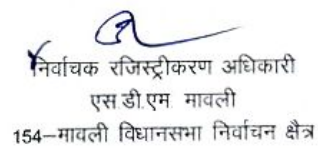 निर्वाचक रजिस्ट्रीकरण अधिकारी
एस.डी.एम. मावली
154–मावली विधानसभा निर्वाचन क्षैत्र